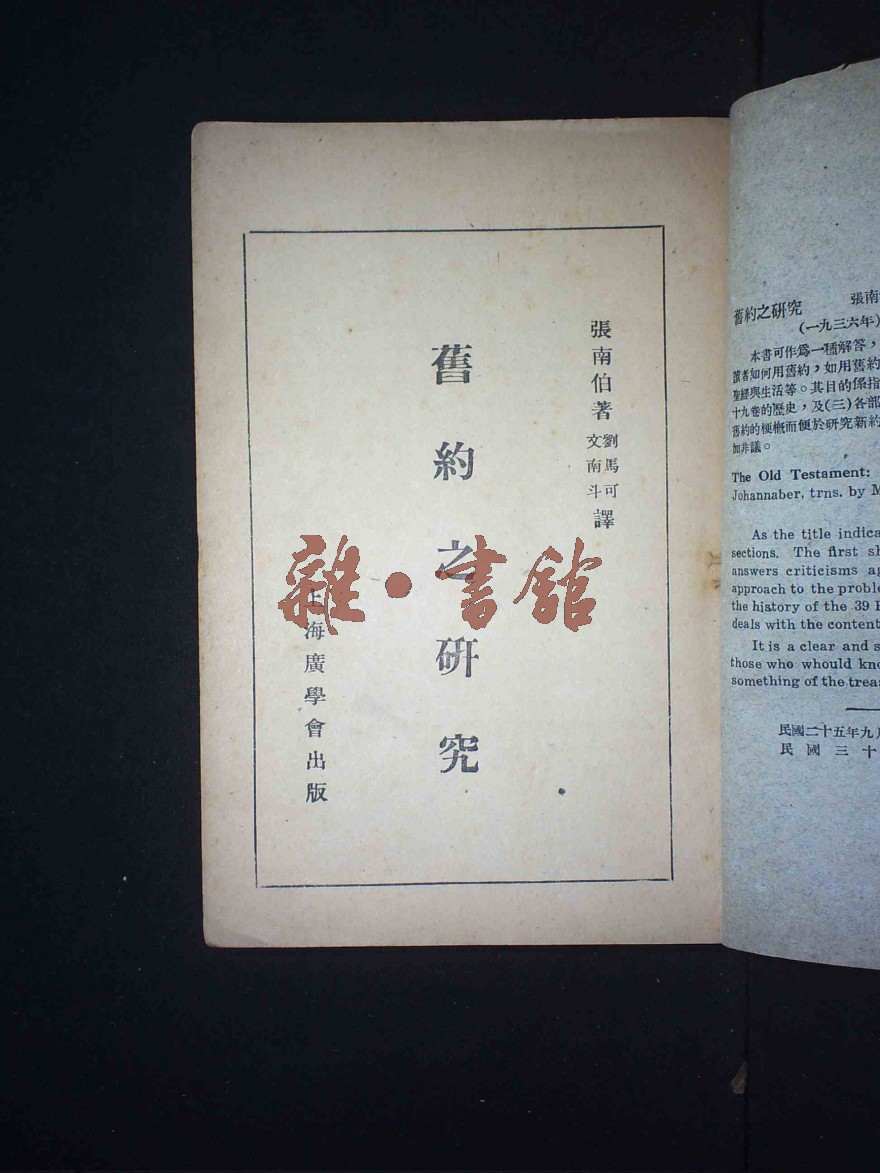 張南伯著 劉馬可 文南斗 譯
舊約之研究
上海廣學會出版
雜·書館
舊約之研究 張南
(一九三六年)
本書可作爲一種解答，
讀者如何用舊約，如用舊約
聖經與生活等。其目的係指
十九卷的歷史，及(三)各部
舊約的梗概而便於研究新約
加非議。
The Old Testament:
Johannaber, trns. by M
As the title indica
sections. The first sh
answers criticisms ag
approach to the proble
the history of the 39
deals with the content
It is a clear and s
those who whould kno
something of the treas
民國二十五年九月
民國三十